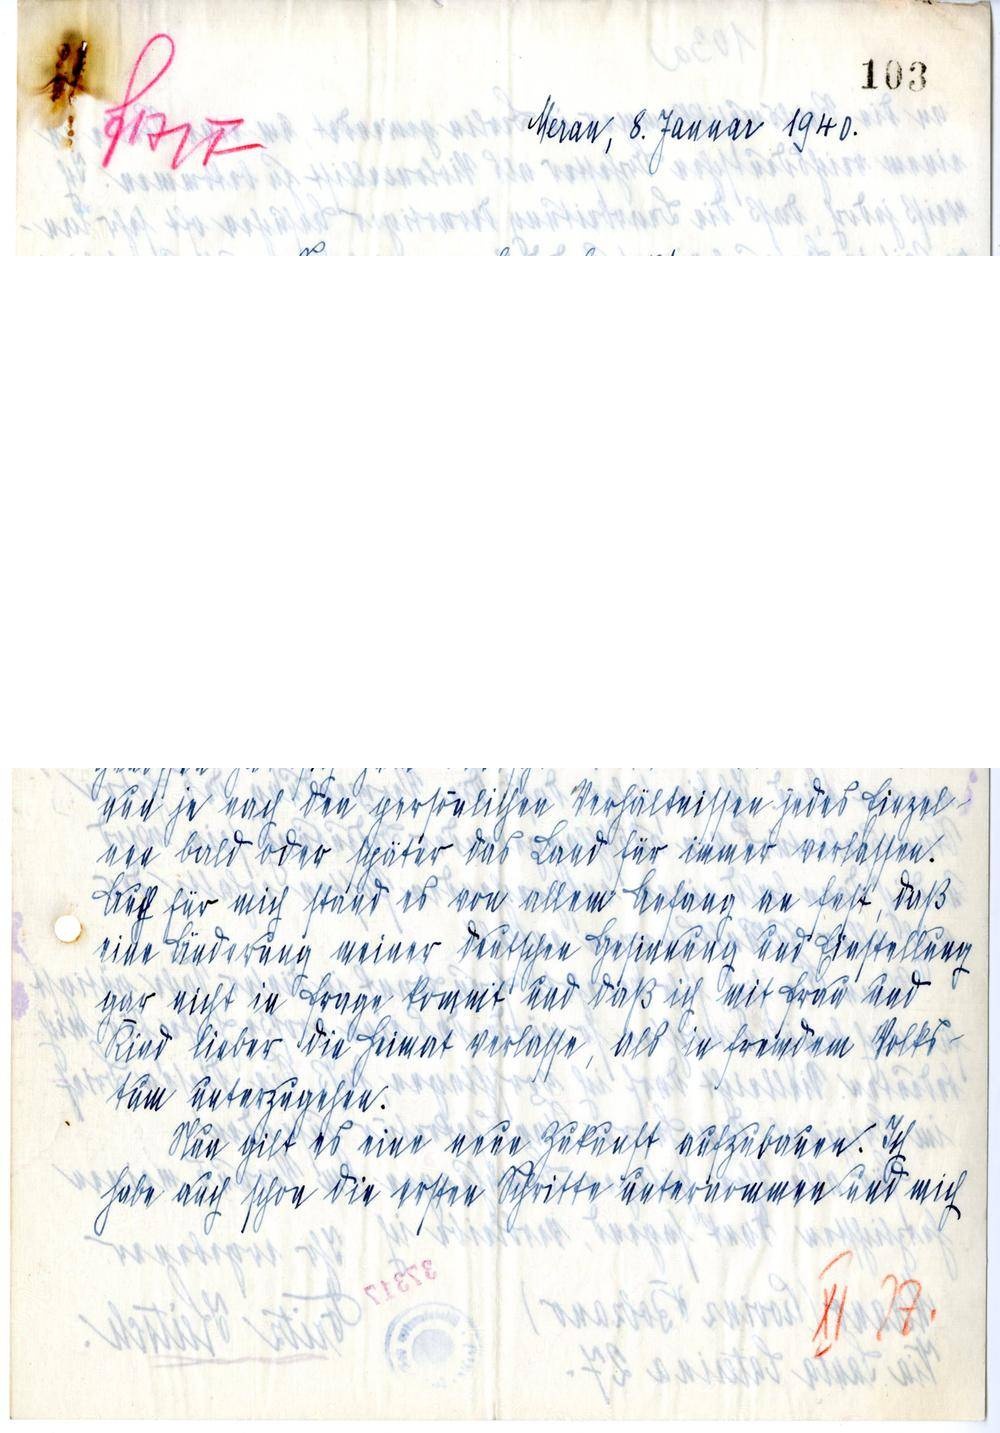 103
Meran, 8. Januar 1940.
nun je nach den persönlichen Verhältnissen jedes Einzel-
nen bald oder später das Land für immer verlassen.
Auch für mich stand es von allem Anfang an fest, daß
eine Änderung meiner deutschen Gesinnung und Einstellung
gar nicht in Frage kommt und daß ich mit Frau und
Kind lieber die Heimat verlasse, als in fremdem Volks-
tum unterzugehen.
Nun gilt es eine neue Zukunft aufzubauen. Ich
habe auch schon die ersten Schritte unternommen und mich
37317
XI 27.